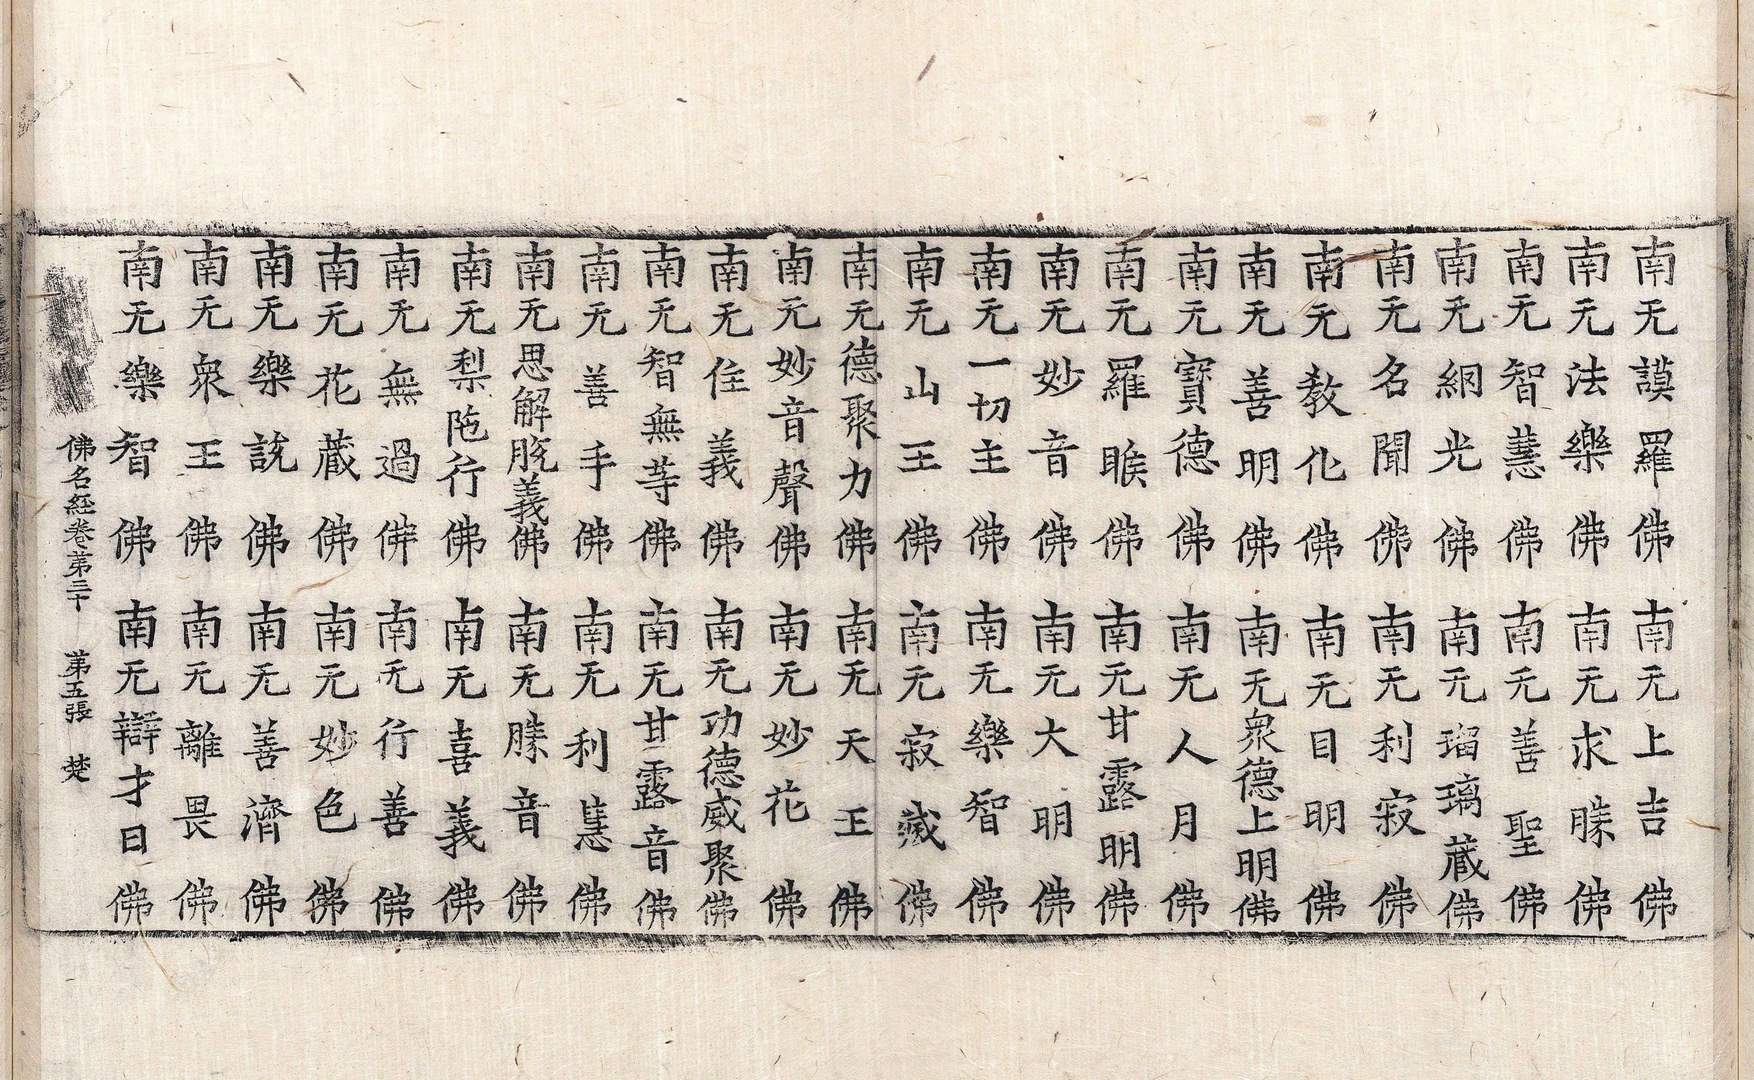 南无謨羅佛 南无上吉佛
南无法樂佛 南无求勝佛
南无智慧佛 南无善聖佛
南无網光佛 南无瑠璃藏佛
南无名聞佛 南无利寂佛
南无教化佛 南无目明佛
南无善明佛 南无衆德上明佛
南无寶德佛 南无人月佛
南无羅睺佛 南无甘露明佛
南无妙音佛 南无大明佛
南无一切主佛 南无樂智佛
南无山王佛 南无寂滅佛
南无德聚力佛 南无天王佛
南无妙音聲佛 南无妙花佛
南无住義佛 南无功德威聚佛
南无智無等佛 南无甘露音佛
南无善手佛 南无利慧佛
南无思解脫義佛 南无勝音佛
南无梨陁行佛 南无喜義佛
南无無過佛 南无行善佛
南无花藏佛 南无妙色佛
南无樂說佛 南无善濟佛
南无衆王佛 南无離畏佛
南无樂智佛 南无辯才日佛
佛名經卷第二十 第五張 楚